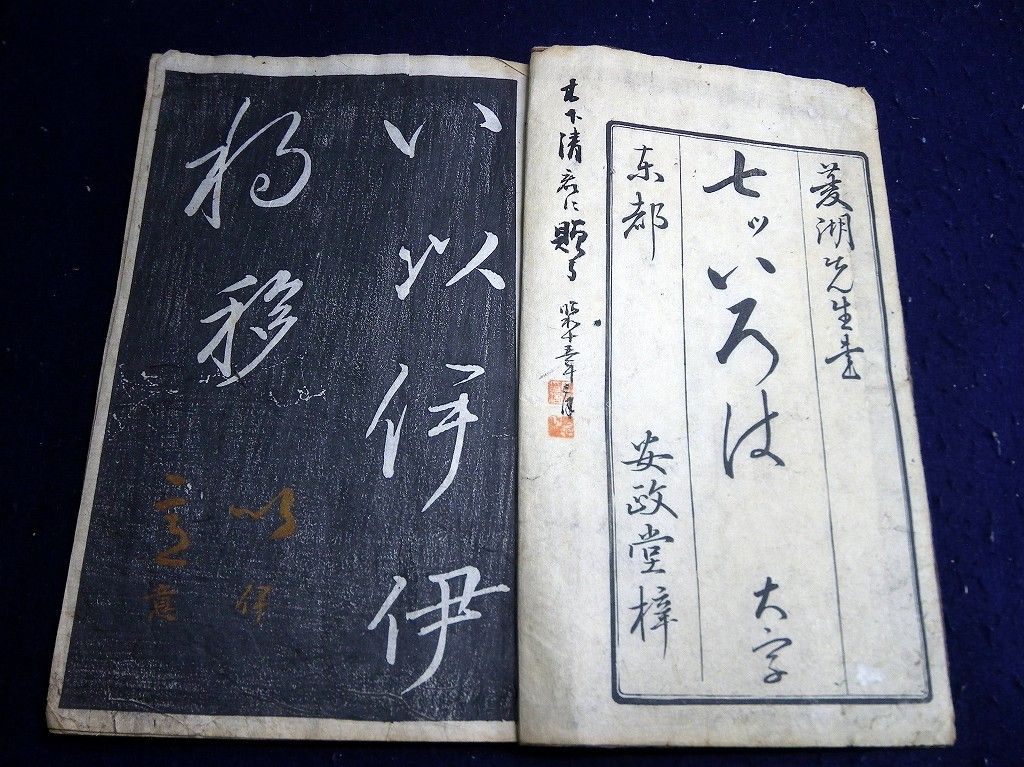 菱湖先生書
七ッいろは 大字
东都 安政堂梓
木下清君に贈る 昭和十五年
い以伊伊
移
以
伊
意